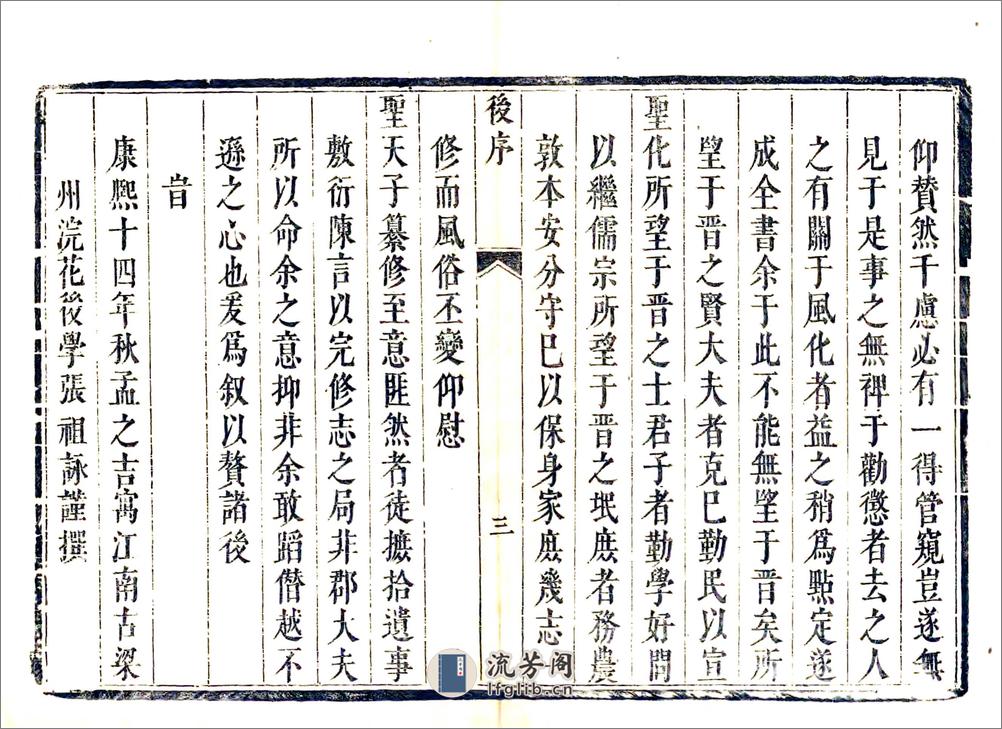 仰贊然千慮必有一得管窺豈遂無
見于是事之無裨于勸懲者去之人
之有關于風化者益之稍爲點定遂
成全書余于此不能無望于晉矣所
望于晉之賢大夫者克已勤民以宣
聖化所望于晉之士君子者勤學好問
以繼儒宗所望于晉之氓庶者務農
敦本安分守巳以保身家庶幾志
後序
三
修而風俗丕變仰慰
聖天子纂修至意匪然者徒摭拾遺事
敷衍陳言以完修志之局非郡大夫
所以命余之意抑非余敢蹈僭越不
遜之心也爰爲叙以贅諸後
旹
康熙十四年秋孟之吉寓江南古梁
州浣花後學張祖詠謹撰
流芳阁
lfglib.cn